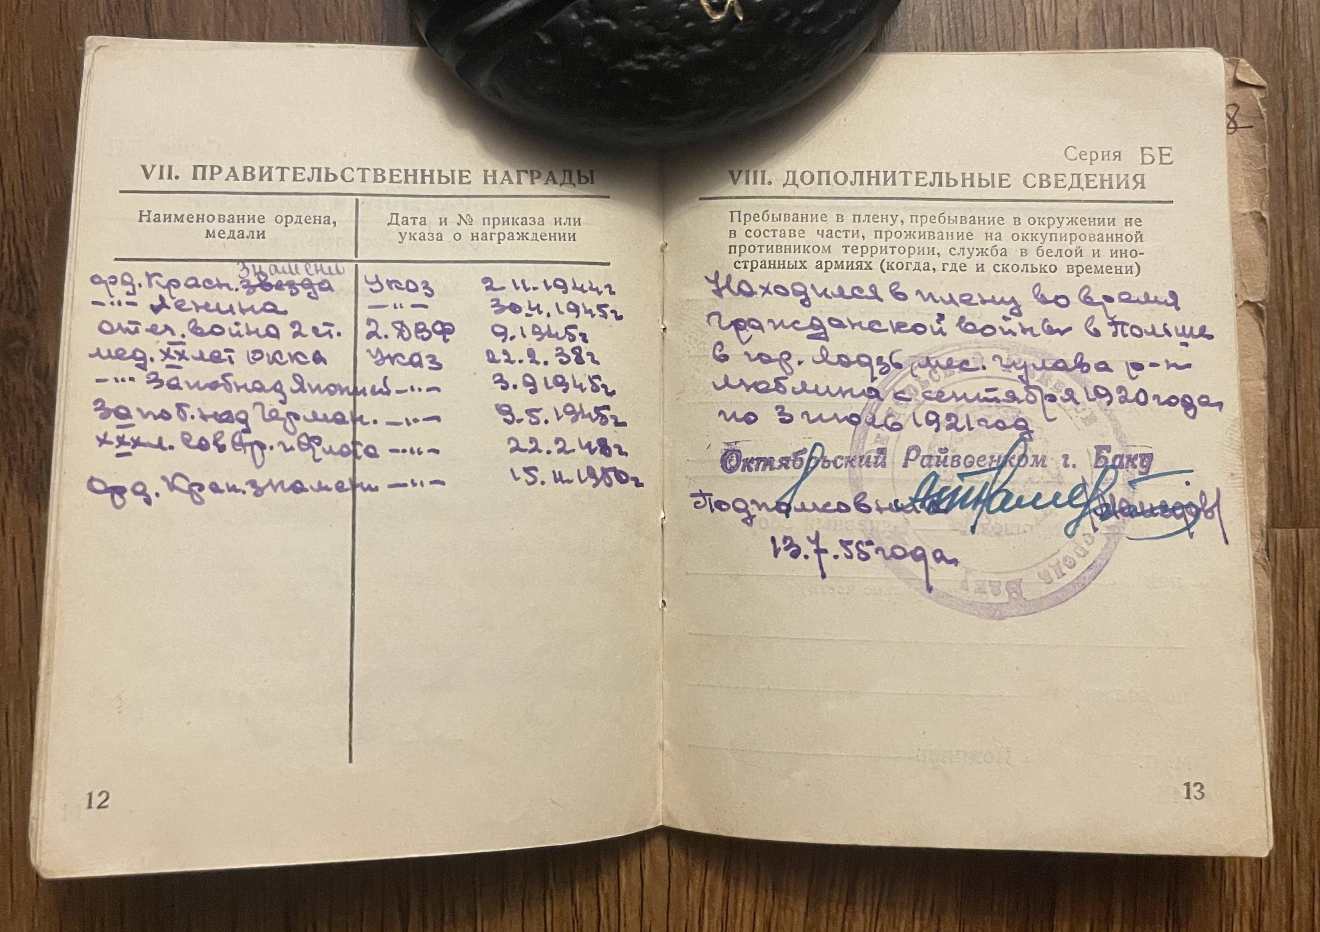 VII. ПРАВИТЕЛЬСТВЕННЫЕ НАГРАДЫ
Наименование ордена, медали
Дата и № приказа или указа о награждении
Знамени
орд. Красн. звезда Указ 2.11.1944г
—"— Ленина —"— 30.4.1945г
отеч. война 2 ст. 2.ДВФ 9.1945г
мед. XX лет РККА Указ 22.2.38г
—"— За поб над Японией —"— 3.9.1945г
За поб. над Герман. —"— 9.5.1945г
XXX л. Сов Ар. и Флота —"— 22.2.48г
Орд. Крас. знамени —"— 15.11.1950г
12
Серия БЕ
VIII. ДОПОЛНИТЕЛЬНЫЕ СВЕДЕНИЯ
Пребывание в плену, пребывание в окружении не
в составе части, проживание на оккупированной
противником территории, служба в белой и ино-
странных армиях (когда, где и сколько времени)
Находился в плену во время
Гражданской войны в Польше
в гор. Лодзь, мес. Пулава р-н
Люблина с сентября 1920 года
по 3 июль 1921 год
Октябрьский Райвоенком г. Баку
Подполковник
13.7.55 года
13
8